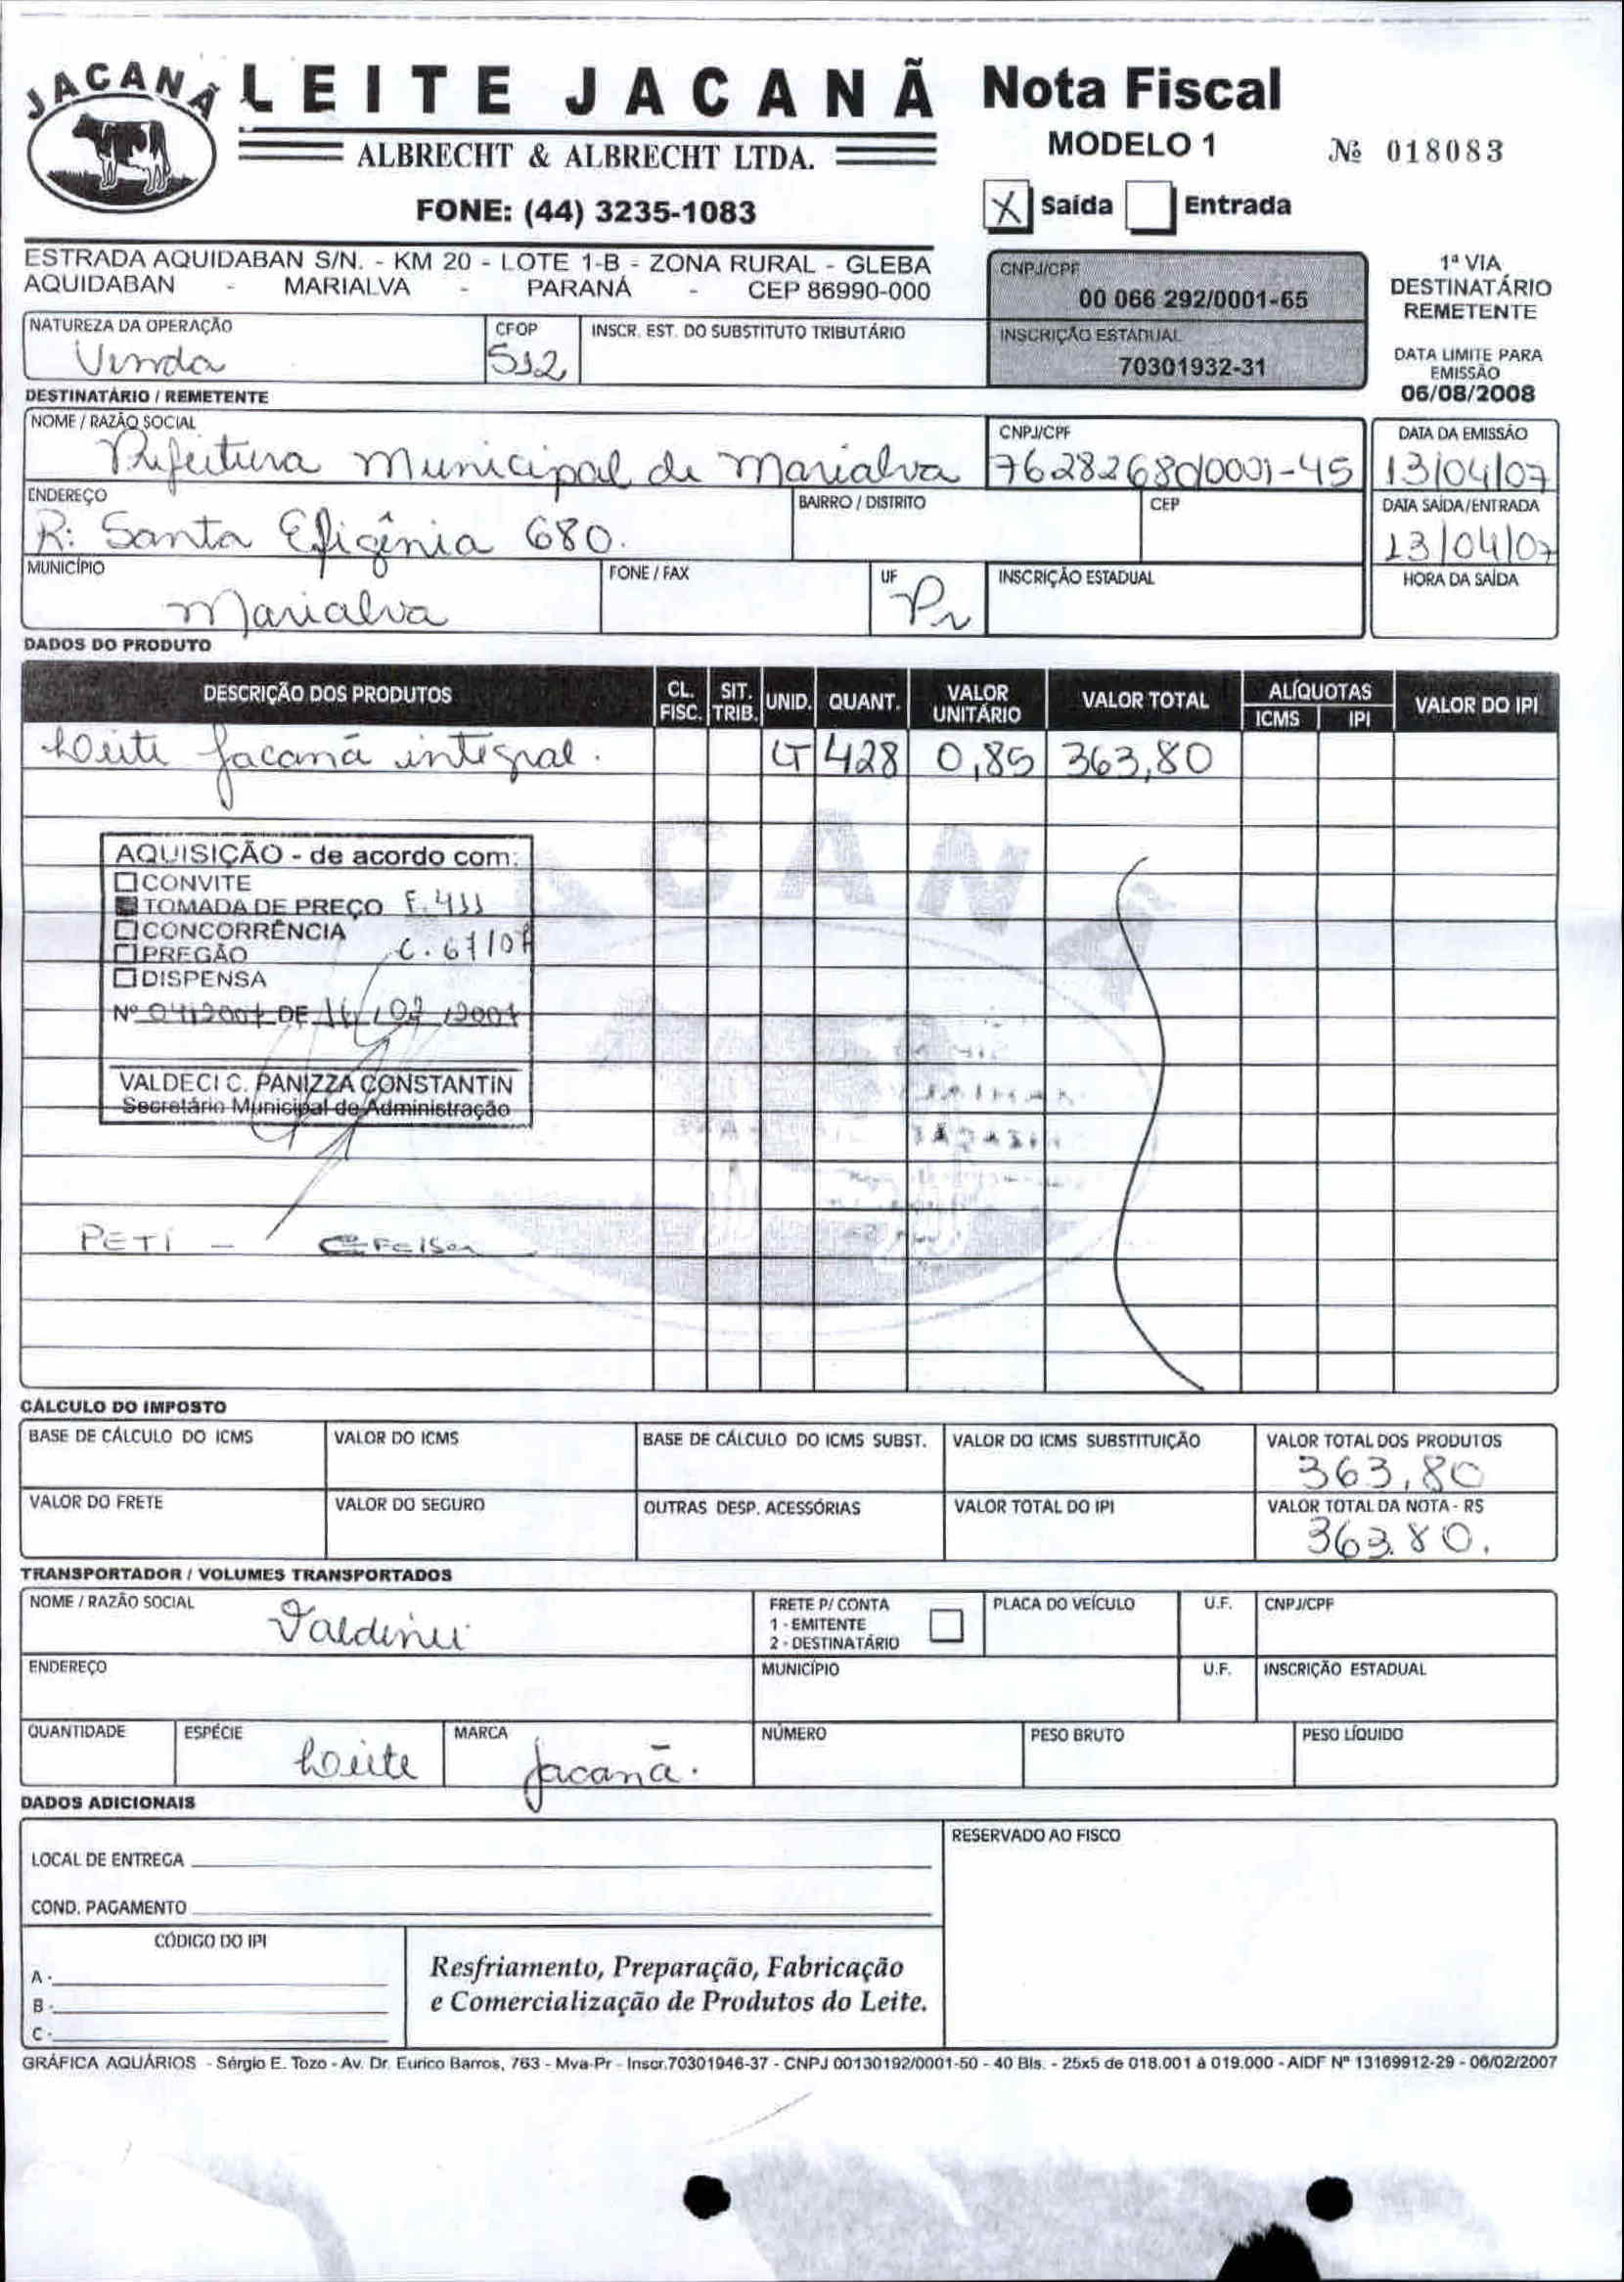 JACANÃ LEITE JACANÃ
ALBRECHT & ALBRECHT LTDA.
FONE: (44) 3235-1083
ESTRADA AQUIDABAN S/N. - KM 20 - LOTE 1-B - ZONA RURAL - GLEBA
AQUIDABAN - MARIALVA - PARANÁ - CEP 86990-000
Nota Fiscal
MODELO 1 Nº 018083
X Saída Entrada
CNPJ/CPF
00 066 292/0001-65
INSCRIÇÃO ESTADUAL
70301932-31
1ª VIA
DESTINATÁRIO
REMETENTE
DATA LIMITE PARA
EMISSÃO
06/08/2008
NATUREZA DA OPERAÇÃO CFOP INSCR. EST. DO SUBSTITUTO TRIBUTÁRIO
Venda 512
DESTINATÁRIO / REMETENTE
NOME / RAZÃO SOCIAL CNPJ/CPF DATA DA EMISSÃO
Prefeitura Municipal de Marialva 76282680/0001-45 13/04/07
ENDEREÇO BAIRRO / DISTRITO CEP DATA SAÍDA/ENTRADA
R: Santa Efigênia 680. 13/04/07
MUNICÍPIO FONE / FAX UF INSCRIÇÃO ESTADUAL HORA DA SAÍDA
Marialva Pr
DADOS DO PRODUTO
DESCRIÇÃO DOS PRODUTOS CL. FISC. SIT. TRIB. UNID. QUANT. VALOR UNITÁRIO VALOR TOTAL ALÍQUOTAS ICMS IPI VALOR DO IPI
Leite Jacanã integral. LT 428 0,85 363,80
AQUISIÇÃO - de acordo com:
CONVITE
TOMADA DE PREÇO F. 411
CONCORRÊNCIA
PREGÃO C. 67/07
DISPENSA
Nº 04/2007 DE 16/02/2007
VALDECI C. PANIZZA CONSTANTIN
Secretário Municipal de Administração
PETI -
CÁLCULO DO IMPOSTO
BASE DE CÁLCULO DO ICMS VALOR DO ICMS BASE DE CÁLCULO DO ICMS SUBST. VALOR DO ICMS SUBSTITUIÇÃO VALOR TOTAL DOS PRODUTOS
363,80
VALOR DO FRETE VALOR DO SEGURO OUTRAS DESP. ACESSÓRIAS VALOR TOTAL DO IPI VALOR TOTAL DA NOTA - RS
363.80.
TRANSPORTADOR / VOLUMES TRANSPORTADOS
NOME / RAZÃO SOCIAL FRETE P/ CONTA PLACA DO VEÍCULO U.F. CNPJ/CPF
Valdinei 1 - EMITENTE
2 - DESTINATÁRIO
ENDEREÇO MUNICÍPIO U.F. INSCRIÇÃO ESTADUAL
QUANTIDADE ESPÉCIE MARCA NÚMERO PESO BRUTO PESO LÍQUIDO
Leite Jacanã.
DADOS ADICIONAIS
LOCAL DE ENTREGA
COND. PAGAMENTO
RESERVADO AO FISCO
CÓDIGO DO IPI
A -
B -
C -
Resfriamento, Preparação, Fabricação
e Comercialização de Produtos do Leite.
GRÁFICA AQUÁRIOS - Sérgio E. Tozo - Av. Dr. Eurico Barros, 763 - Mva-Pr - Inscr.70301946-37 - CNPJ 00130192/0001-50 - 40 Bls. - 25x5 de 018.001 à 019.000 - AIDF Nº 13169912-29 - 06/02/2007